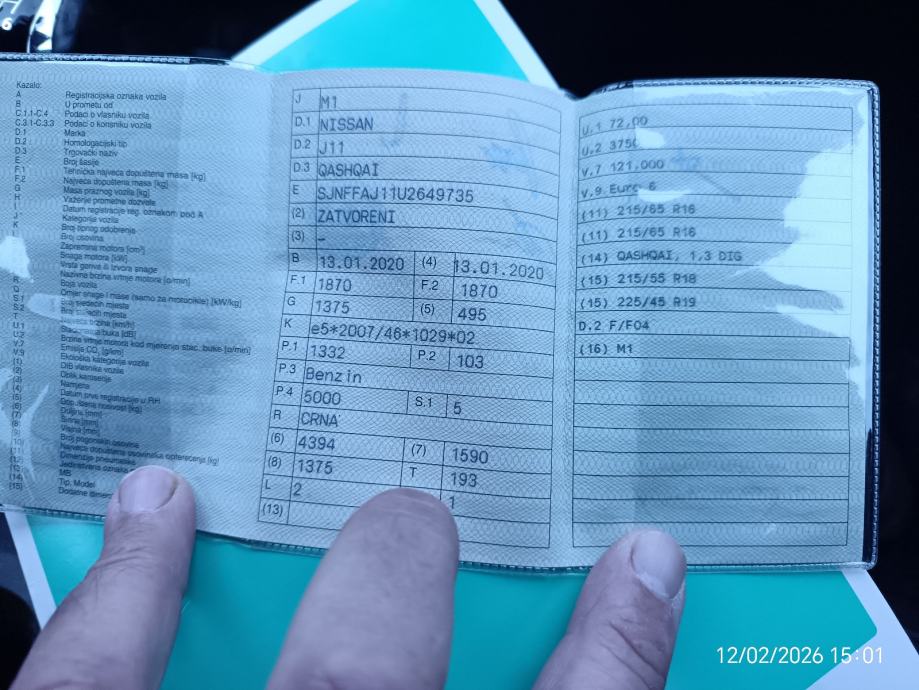 6
Kazalo:
A Registracijska oznaka vozila
B U prometu od
C.1.1-C.4 Podaci o vlasniku vozila
C.3.1-C.3.3 Podaci o korisniku vozila
D.1 Marka
D.2 Homologacijski tip
D.3 Trgovački naziv
E Broj šasije
F.1 Tehnička najveća dopuštena masa [kg]
F.2 Najveća dopuštena masa [kg]
G Masa praznog vozila [kg]
H Važenje prometne dozvole
I Datum registracije reg. oznakom pod A
J Kategorija vozila
K Broj tipnog odobrenja
L Broj osovina
Zapremina motora [cm³]
Snaga motora [kW]
Vrsta goriva ili izvora snage
Nazivna brzina vrtnje motora [o/min]
R Boja vozila
Q Omjer snage i mase (samo za motocikle) [kW/kg]
S.1 Broj sjedećih mjesta
S.2 Broj stajaćih mjesta
T Najveća brzina [km/h]
U.1 Stacionarna buka [dB]
U.2 Brzina vrtnje motora kod mjerenja stac. buke [o/min]
V.7 Emisija CO₂ [g/km]
V.9 Ekološka kategorija vozila
(1) OIB vlasnika vozila
(2) Oblik karoserije
(3) Namjena
(4) Datum prve registracije u RH
(5) Dop. nosivost [kg]
(6) Duljina [mm]
(7) Širina [mm]
(8) Visina [mm]
(9) Broj pogonskih osovina
(10) Najveće dopušteno osovinsko opterećenje [kg]
(11) Dimenzije pneumatika
(12) Jedinstvena oznaka
(13) MB
(14) Tip, Model
(15) Dodatne
J M1
D.1 NISSAN
D.2 J11
D.3 QASHQAI
E SJNFFAJ11U2649735
(2) ZATVORENI
(3) –
B 13.01.2020 (4) 13.01.2020
F.1 1870 F.2 1870
G 1375 (5) 495
K e5*2007/46*1029*02
P.1 1332 P.2 103
P.3 Benzin
P.4 5000 S.1 5
R CRNA
(6) 4394 (7) 1590
(8) 1375 T 193
L 2 1
(13)
U.1 72,00
U.2 3750
V.7 121.000
V.9 Euro 6
(11) 215/65 R16
(11) 215/65 R16
(14) QASHQAI, 1,3 DIG
(15) 215/55 R18
(15) 225/45 R19
D.2 F/F04
(16) M1
12/02/2026 15:01